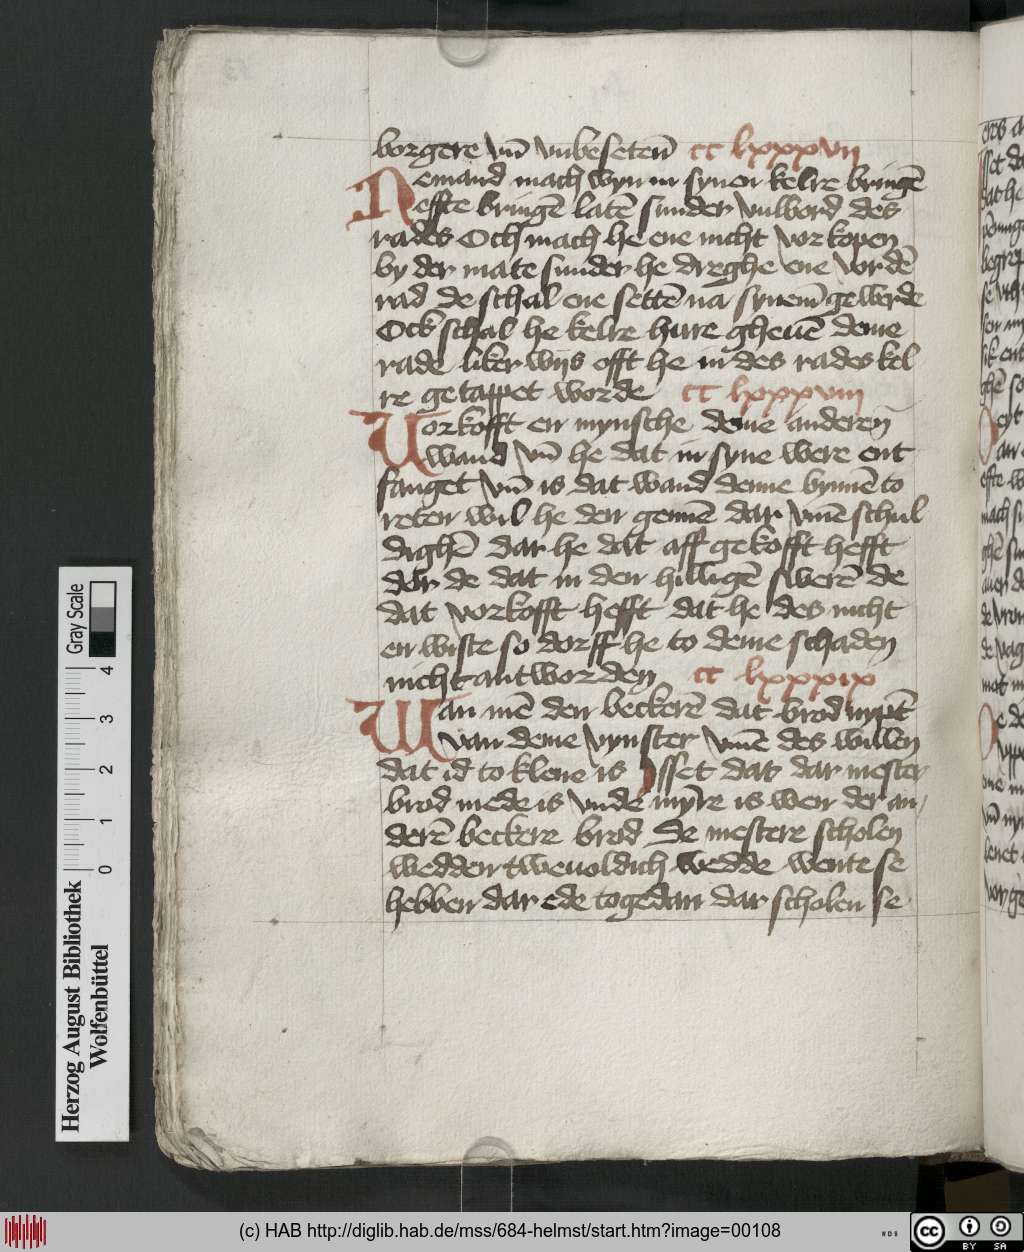 borgere vn̄ vnbesetenn̄ cc lxxxvii
Nemand mach wyn in synen kelre bringē
effte bringē latē sunder vulbord des
rades Och mach he ene nicht vorkopen
by der mate sunder he dreghe ene vor dē
rad de schal ene settē na synem̄ gewerde
Ock schal he kelre hure gheuē deme
rade liker wijs offt he in des rades kel
re getappet worde cc lxxxviii
Vorkofft en mynsche deme anderen
wand vn̄ he dat in syne were ent
fanget vn̄ is dat wand denne bynnē to
reten wil he den gennē dar vmē schul
dighē dar he dat aff gekofft hefft
dar de dat in den hilligē swerē de
dat vorkofft hefft dat he des nicht
en wiste so dorff he to deme schaden
nicht antworden cc lxxxix
Wan mē den beckerē dat brod nypt
van deme vynster vmē des willen
dat id to klene is Isset dat dar mester
brod mede is vnde myre is wen der an
derē beckere brod De mestere scholen
wedden tweuoldich wedde wente se
hebben dar ede to gedan dar scholen se
Gray Scale
0 1 2 3 4
Herzog August Bibliothek
Wolfenbüttel
(c) HAB http://diglib.hab.de/mss/684-helmst/start.htm?image=00108
WDB
cc
BY SA